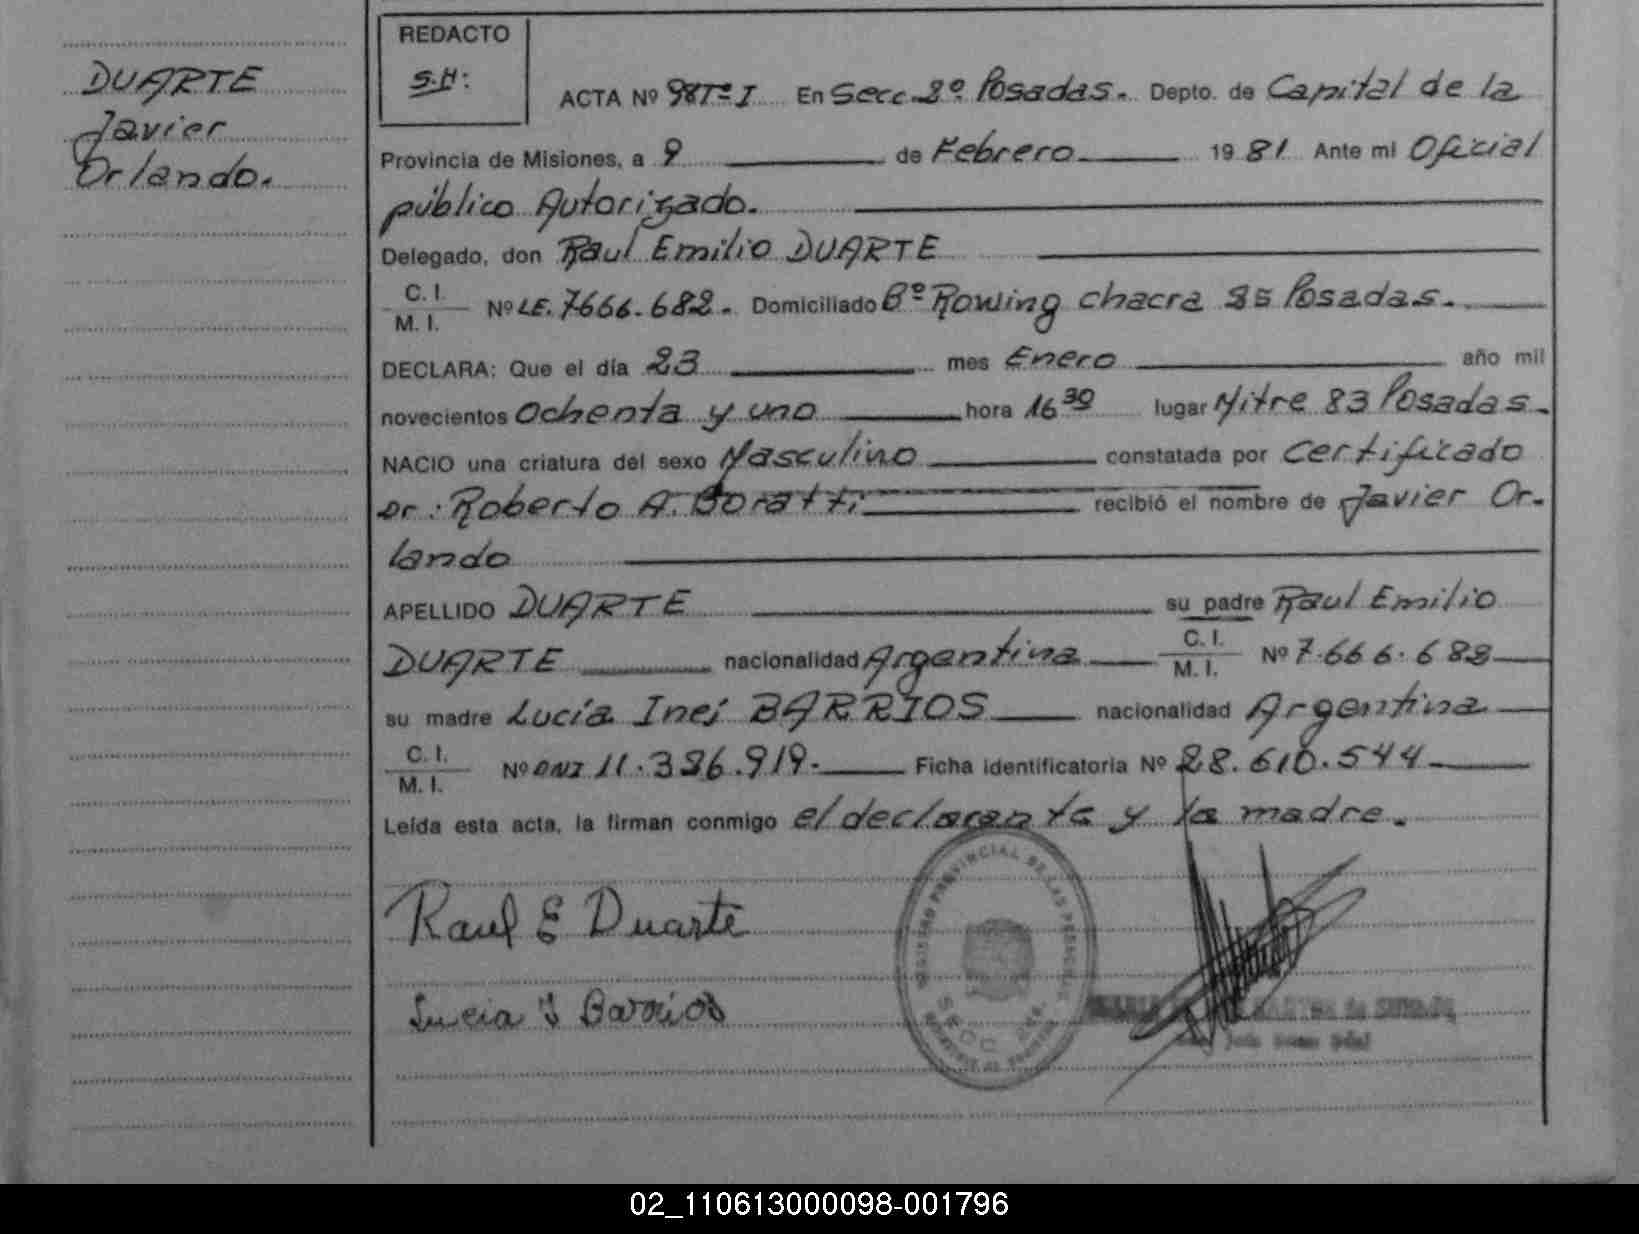 DUARTE
Javier
Orlando.
REDACTO
S.H:
ACTA Nº 98 Tº I En Secc. 2º Posadas. Depto. de Capital de la
Provincia de Misiones, a 9 de Febrero 1981 Ante mi Oficial
público Autorizado.
Delegado, don Raul Emilio DUARTE
C. I.
M. I.
Nº LE. 7666.682. Domiciliado Bº Rowing chacra Posadas.
DECLARA: Que el día 23 mes Enero año mil
novecientos Ochenta y uno hora 16 30 lugar Mitre 83 Posadas.
NACIO una criatura del sexo Masculino constatada por Certificado
Dr: Roberto A. Boratti recibió el nombre de Javier Or-
lando
APELLIDO DUARTE su padre Raul Emilio
DUARTE nacionalidad Argentina C. I. Nº 7.666.682
M. I.
su madre Lucía Ines BARRIOS nacionalidad Argentina
C. I.
M. I.
Nº DNI 11.396.919. Ficha identificatoria Nº 28.610.544
Leída esta acta, la firman conmigo el declarante y la madre.
Raul E Duarte
Lucia I Barrios
REGISTRO PROVINCIAL DE LAS PERSONAS
SECC.
02_110613000098-001796